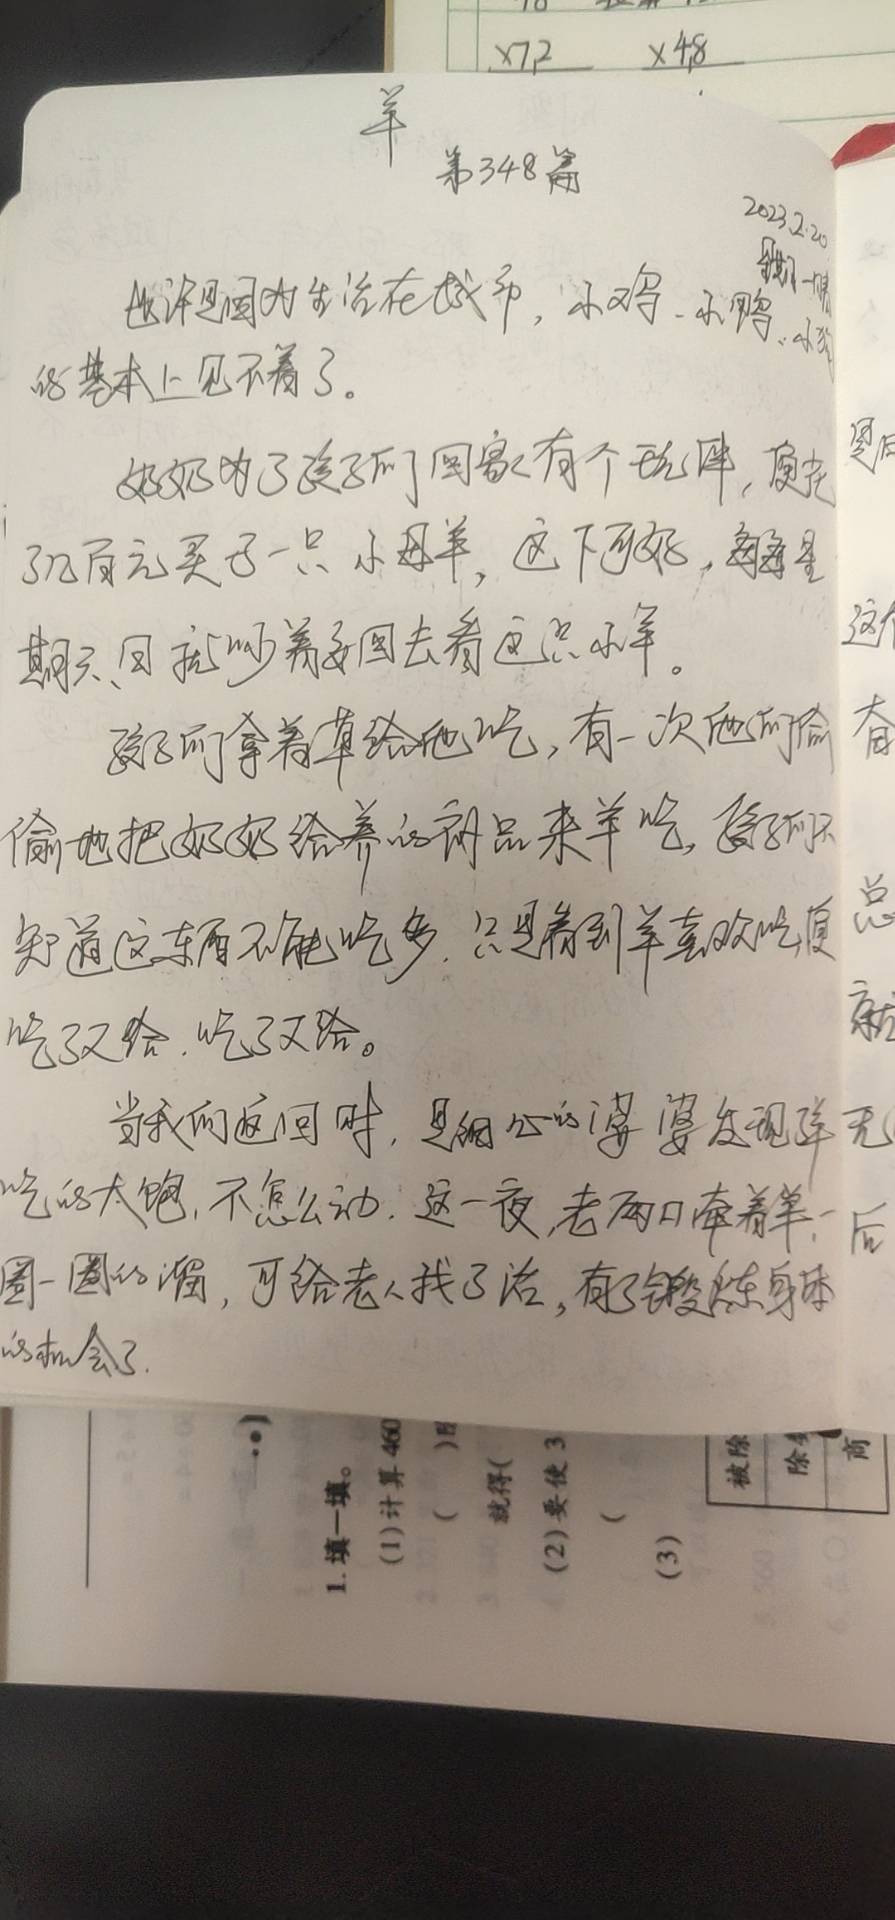 ×7.2 ×4.8
羊
第348篇
2023.2.20
星期一 晴
也许是因为生活在城市，小鸡、小鸭、小狗
的基本上见不着了。
奶奶为了孩子们回家有个玩伴，便花
了几百元买了一只小母羊，这下可好，每每星
期天、日就吵着要回去看这只小羊。
孩子们拿着草给他吃，有一次他们偷
偷地把奶奶给养的 品来羊吃，孩子们不
知道这东西不能吃多，只是看到羊喜欢吃，便
吃了又给，吃了又给。
当我们返回时，是细心的婆婆发现羊
吃的太饱，不怎么动，这一夜，老两口牵着羊一
圈一圈的溜，可给老人找了活，有了锻炼身体
的机会了.
是
这
奋
总
就
无
后
1.填一填。
(1)计算460
( )
就得(
(2)要使3
(
(3)
被除
除
商